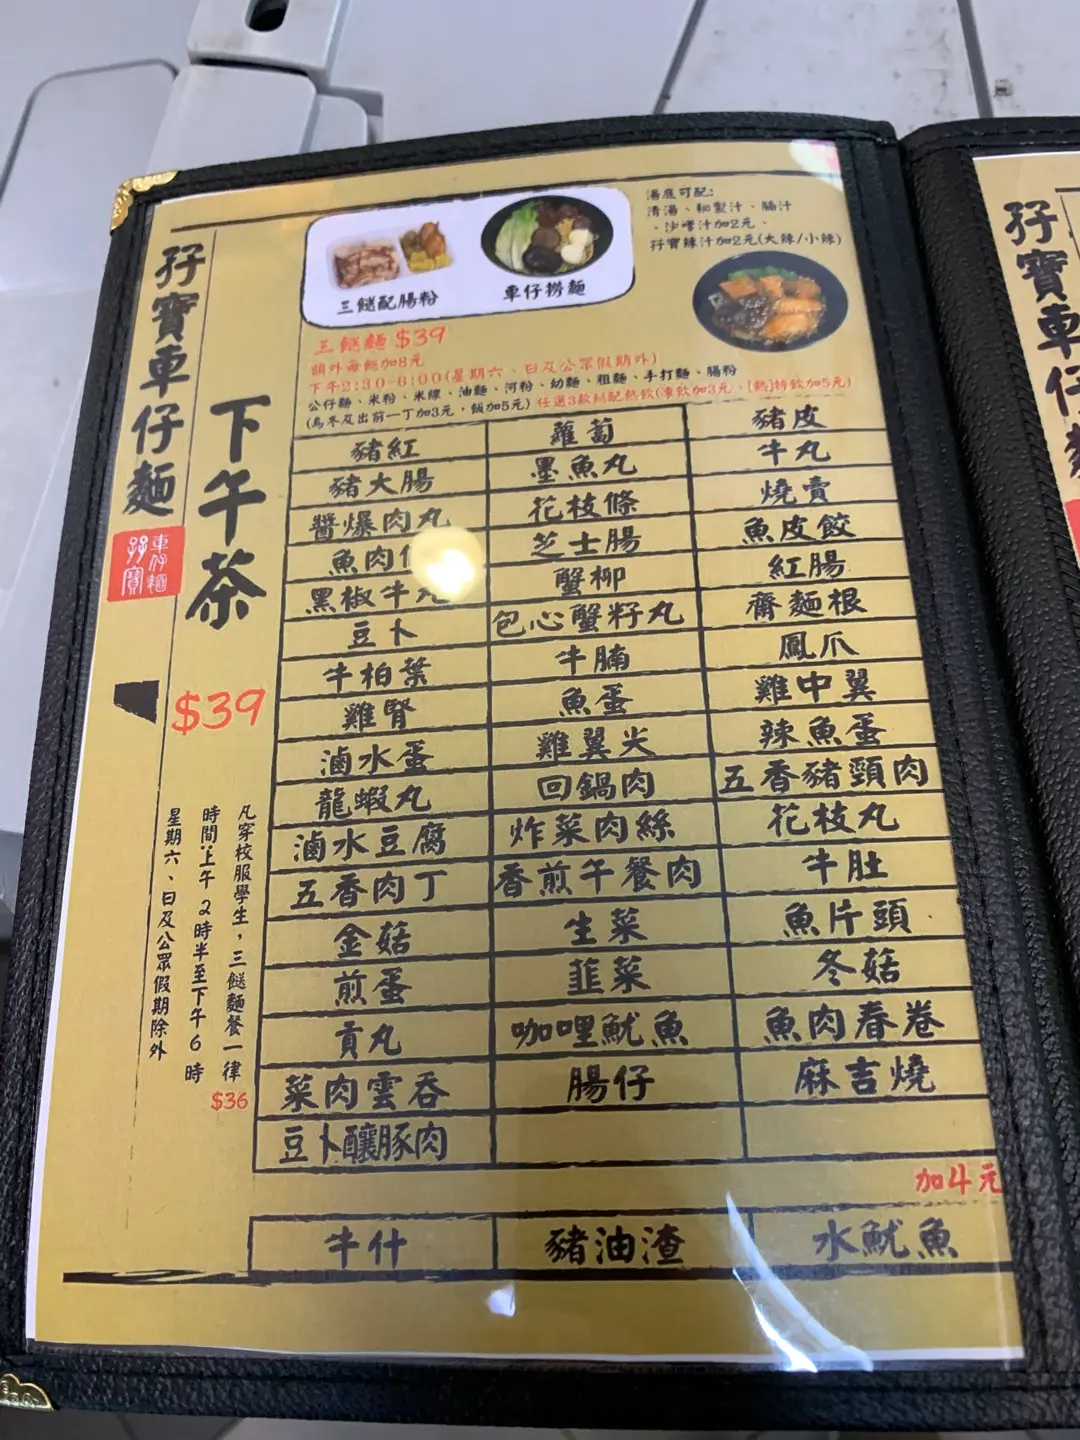 孖寶車仔麵
孖寶
車仔麵
下午茶
$39
凡穿校服學生，三餸麵餐一律
$36
時間上午 2時半至下午6時
星期六、日及公眾假期除外
三餸配腸粉
車仔撈麵
湯底可配:
清湯、秘製汁、腩汁
、沙嗲汁加2元、
孖寶辣汁加2元(大辣/小辣)
三餸麵 $39
額外每餸加8元
下午2:30-6:00(星期六、日及公眾假期外)
公仔麵、米粉、米線、油麵、河粉、幼麵、粗麵、手打麵、腸粉
(烏冬及出前一丁加3元，飯加5元) 任選3款餸配熱飲(凍飲加3元、[熱]特飲加5元)
豬紅 蘿蔔 豬皮
豬大腸 墨魚丸 牛丸
醬爆肉丸 花枝條 燒賣
魚肉 芝士腸 魚皮餃
黑椒牛丸 蟹柳 紅腸
豆卜 包心蟹籽丸 齋麵根
牛柏葉 牛腩 鳳爪
雞腎 魚蛋 雞中翼
滷水蛋 雞翼尖 辣魚蛋
龍蝦丸 回鍋肉 五香豬頸肉
滷水豆腐 炸菜肉絲 花枝丸
五香肉丁 香煎午餐肉 牛肚
金菇 生菜 魚片頭
煎蛋 韮菜 冬菇
貢丸 咖哩魷魚 魚肉春卷
菜肉雲吞 腸仔 麻吉燒
豆卜釀豚肉
加4元
牛什 豬油渣 水魷魚
孖寶車仔麵